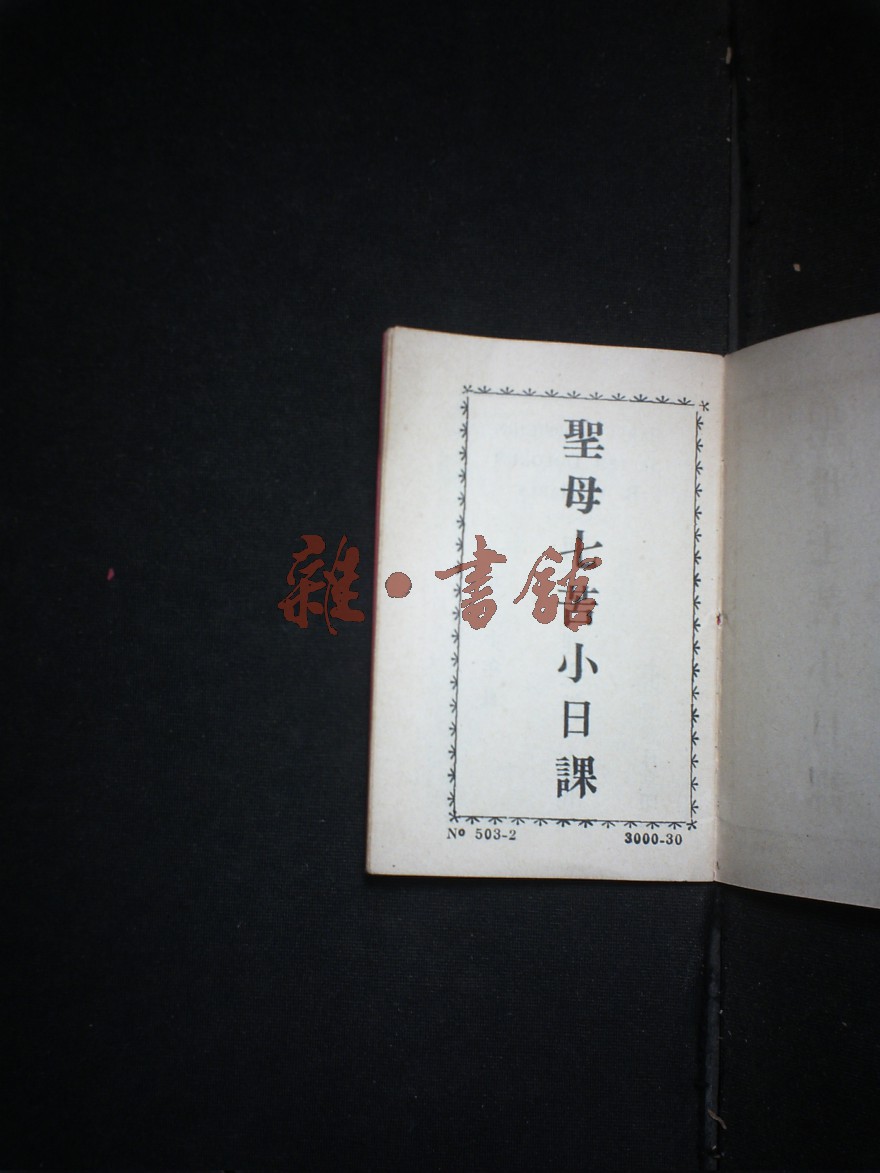 聖母七苦小日課
雜·書館
Nº 503-2
3000-30